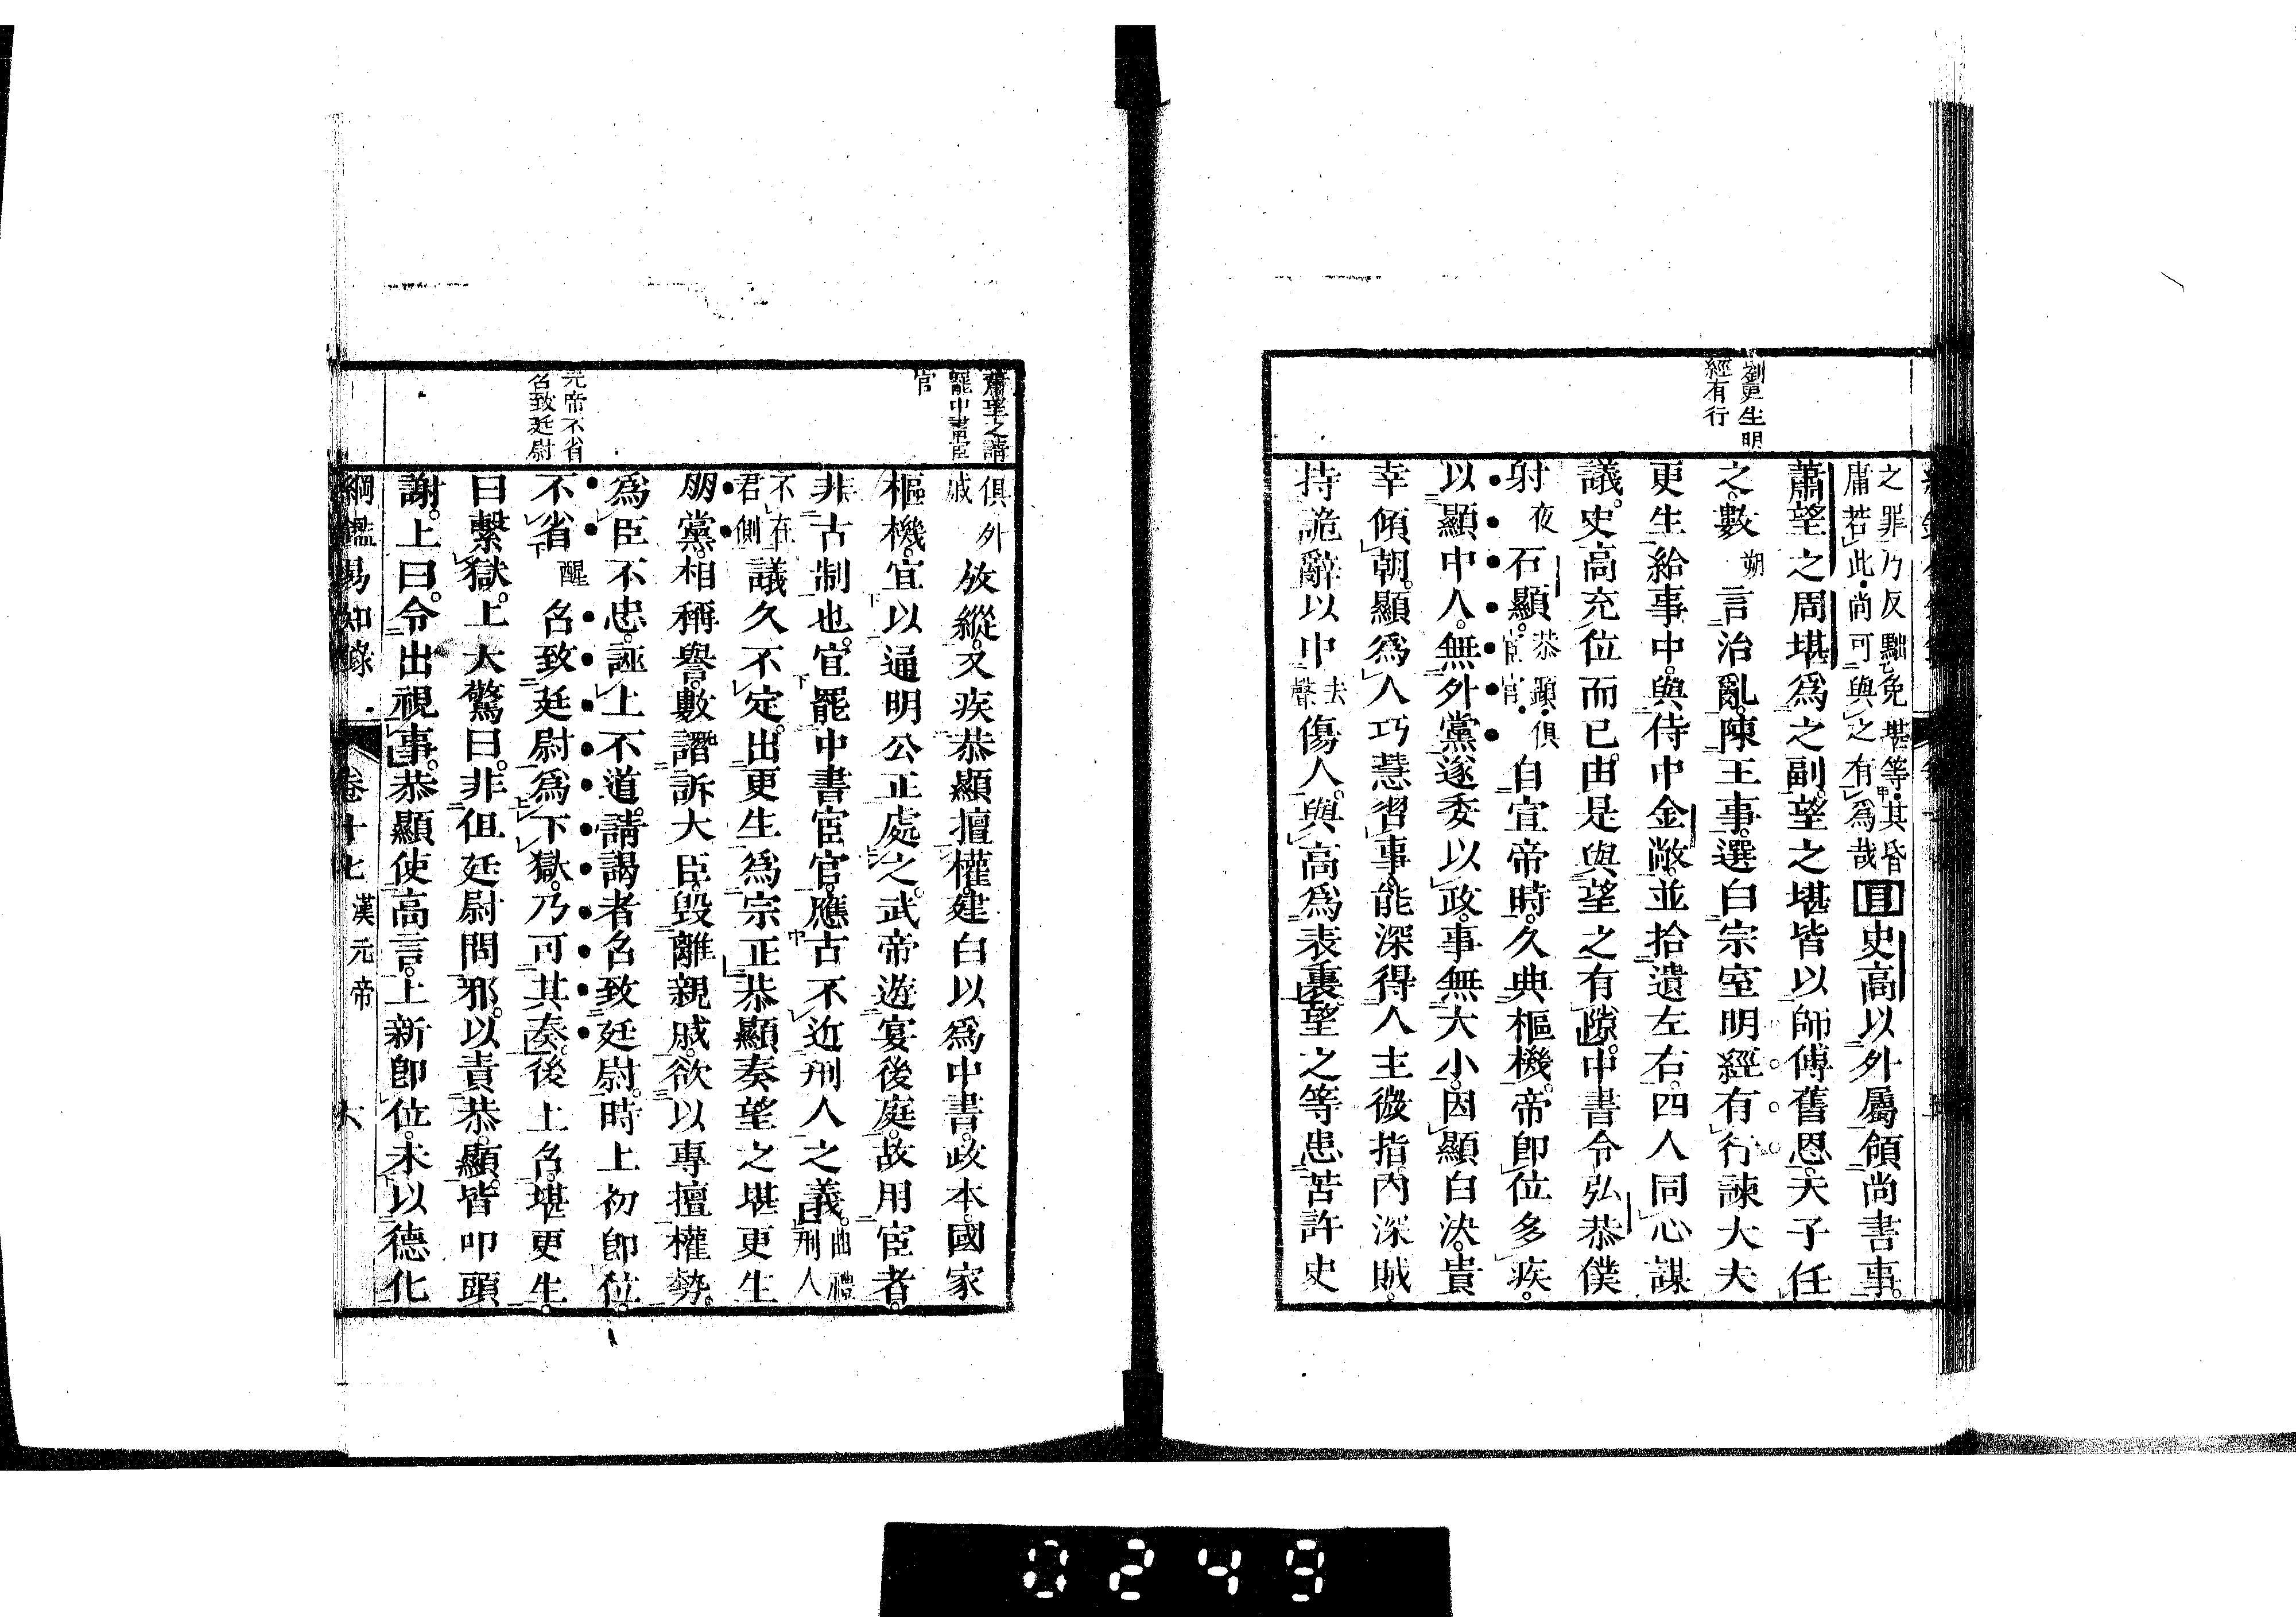 劉更生明
經有行
之罪乃反黜免堪等其昏
庸若此尚可與之有爲哉
目史高以外屬領尚書事。
蕭望之周堪爲之副。望之堪皆以師傅舊恩。天子任
之。數朔言治亂。陳王事。選白宗室明經有行諫大夫
更生給事中。與侍中金敞。並拾遺左右。四人同心謀
議。史高充位而已。由是與望之有隙。中書令弘恭僕
射夜石顯。恭顯俱宦官自宣帝時。久典樞機。帝卽位多疾。
以顯中人。無外黨。遂委以政。事無大小。因顯白決。貴
幸傾朝。顯爲人巧慧習事。能深得人主微指。內深賊。
持詭辭以中去聲傷人。與高爲表裏。望之等患苦許史
蕭望之請
罷中書宦
官
元帝不省
召致廷尉
俱外戚放縱。又疾恭顯擅權。建白以爲中書政本。國家
樞機。宜以通明公正處之。武帝遊宴後庭。故用宦者。
非古制也。宜罷中書宦官。應古不近刑人之義。曲禮曰刑人
不在君側議久不定。出更生爲宗正。恭顯奏望之堪更生
朋黨。相稱譽。數譖訴大臣。毀離親戚。欲以專擅權勢。
爲臣不忠。誣上不道。請謁者召致廷尉。時上初卽位。
不省醒召致廷尉爲下獄。乃可其奏。後上召堪更生。
曰繫獄。上大驚曰。非但廷尉問邪。以責恭顯。皆叩頭
謝。上曰。令出視事。恭顯使高言。上新卽位。未以德化
綱鑑易知錄 卷十七 漢元帝 六
0249